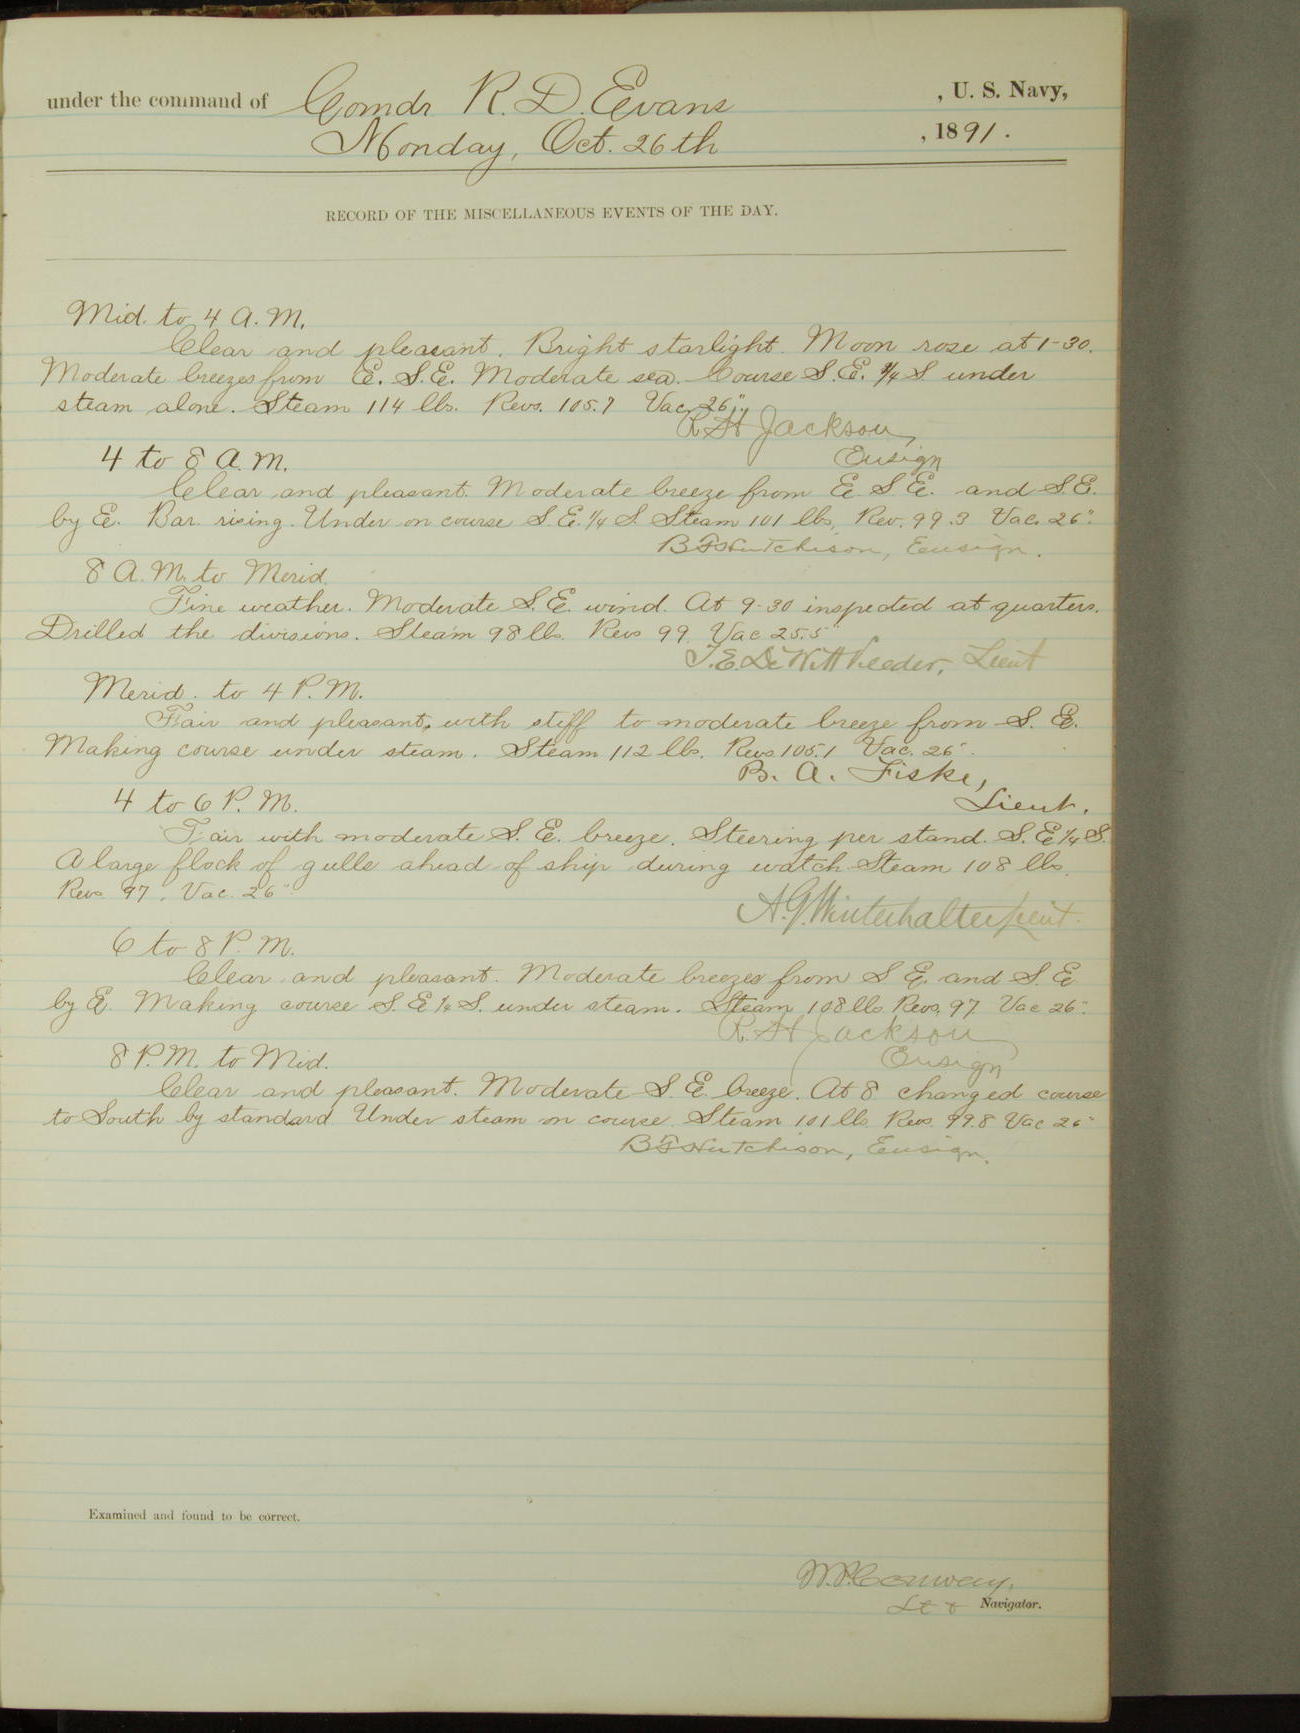 under the command of Comdr R. D. Evans , U. S. Navy,
Monday, Oct. 26th , 1891.
RECORD OF THE MISCELLANEOUS EVENTS OF THE DAY.
Mid. to 4 A. M.
Clear and pleasant. Bright starlight. Moon rose at 1-30.
Moderate breezes from E. S. E. Moderate sea. Course S. E. 3/4 S under
steam alone. Steam 114 lbs. Revs. 105.7 Vac. 26".
R H Jackson,
Ensign
4 to 8 A. M.
Clear and pleasant. Moderate breeze from E. S. E. and S. E.
by E. Bar. rising. Under on course S. E. 1/4 S. Steam 101 lbs, Rev. 99.3 Vac. 26".
B F Hutchison, Ensign.
8 A. M. to Merid.
Fine weather. Moderate S. E. wind. At 9-30 inspected at quarters.
Drilled the divisions. Steam 98 lbs. Revs 99. Vac 25.5"
T. E. DeWitt Veeder, Lieut
Merid. to 4 P. M.
Fair and pleasant, with stiff to moderate breeze from S. E.
Making course under steam. Steam 112 lbs. Revs. 105.1 Vac. 26".
B. A. Fiske,
Lieut.
4 to 6 P. M.
Fair with moderate S. E. breeze. Steering per stand. S. E 1/4 S.
A large flock of gulls ahead of ship during watch. Steam 108 lbs.
Revs. 97. Vac. 26"
A. G. Winterhalter Lieut.
6 to 8 P. M.
Clear and pleasant. Moderate breezes from S E. and S. E
by E. Making course S. E 1/4 S. under steam. Steam 108 lbs. Revs. 97 Vac 26".
R. H Jackson
Ensign
8 P. M. to Mid.
Clear and pleasant. Moderate S. E. breeze. At 8 changed course
to South by standard Under steam on course. Steam 101 lbs. Revs. 99.8 Vac 26"
B F Hutchison, Ensign.
Examined and found to be correct.
W. P. Conway,
Lt & Navigator.